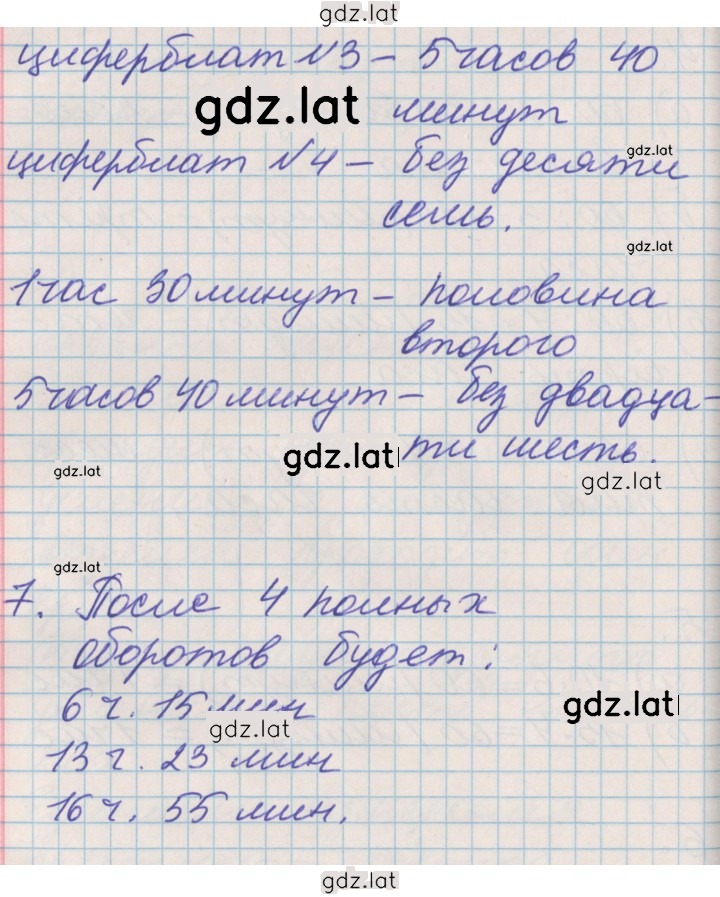 gdz.lat
циферблат №3 – 5 часов 40
gdz.lat минут
gdz.lat
циферблат №4 – без десяти
семь.
gdz.lat
1 час 30 минут – половина
второго
5 часов 40 минут – без двадца-
gdz.lat ти шесть.
gdz.lat
gdz.lat
gdz.lat
7. После 4 полных
оборотов будет:
6 ч. 15 мин
gdz.lat
gdz.lat
13 ч. 23 мин
16 ч. 55 мин.
gdz.lat